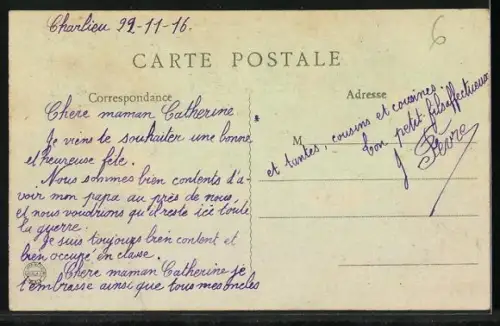 Charlieu 22-11-16.
6
CARTE POSTALE
Correspondance
Adresse
M
Chère maman Catherine
Je viens te souhaiter une bonne
et heureuse fête.
Nous sommes bien contents d'a-
voir mon papa au près de nous,
et nous voudrions qu'il reste ici toute
la guerre.
Je suis toujours bien content et
bien occupé en classe.
Chère maman Catherine je
t'embrasse ainsi que tous mes oncles
et tantes, cousins et cousines.
Ton petit-fils affectueux
J